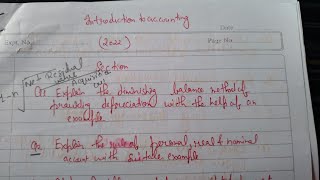 Introduction to accounting
Date
Expt. No.
Page No.
(2022)
Section
1-n√
Q1 Explain the diminishing balance method of
providing depreciation with the help of an
example
Q2 Explain the rules of personal, real & nominal
account with suitable example